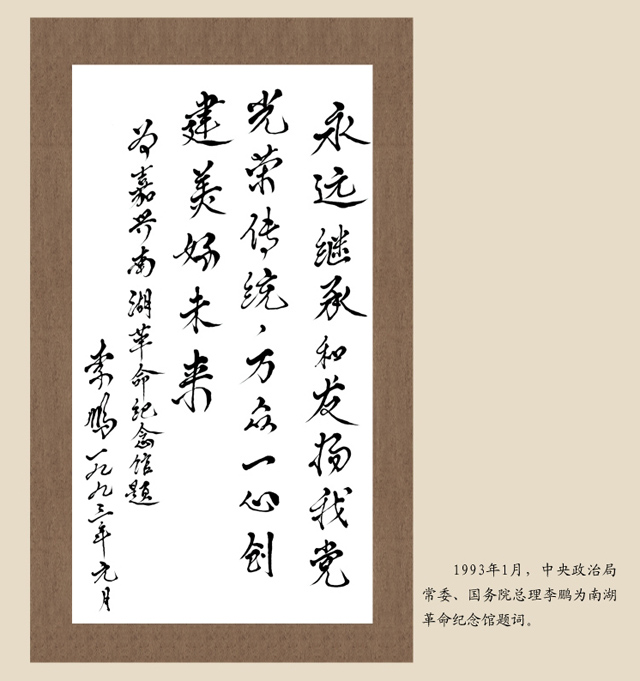 永远继承和发扬我党
光荣传统，万众一心创
建美好未来
为嘉兴南湖革命纪念馆题
李鹏 一九九三年元月
1993年1月，中央政治局
常委、国务院总理李鹏为南湖
革命纪念馆题词。